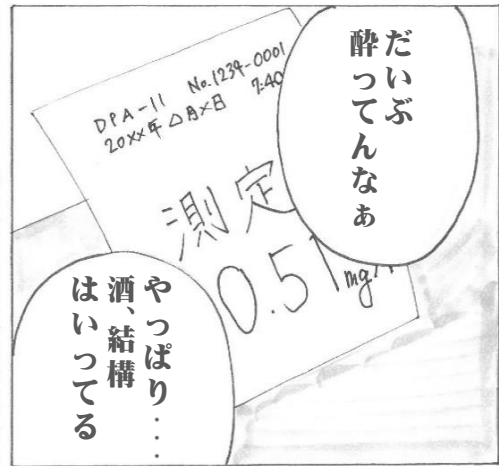 だいぶ
酔ってんなぁ
DPA-11 No.1234-0001
20××年△月×日 7:40
測定
0.51mg/
やっぱり....
酒、結構
はいってる